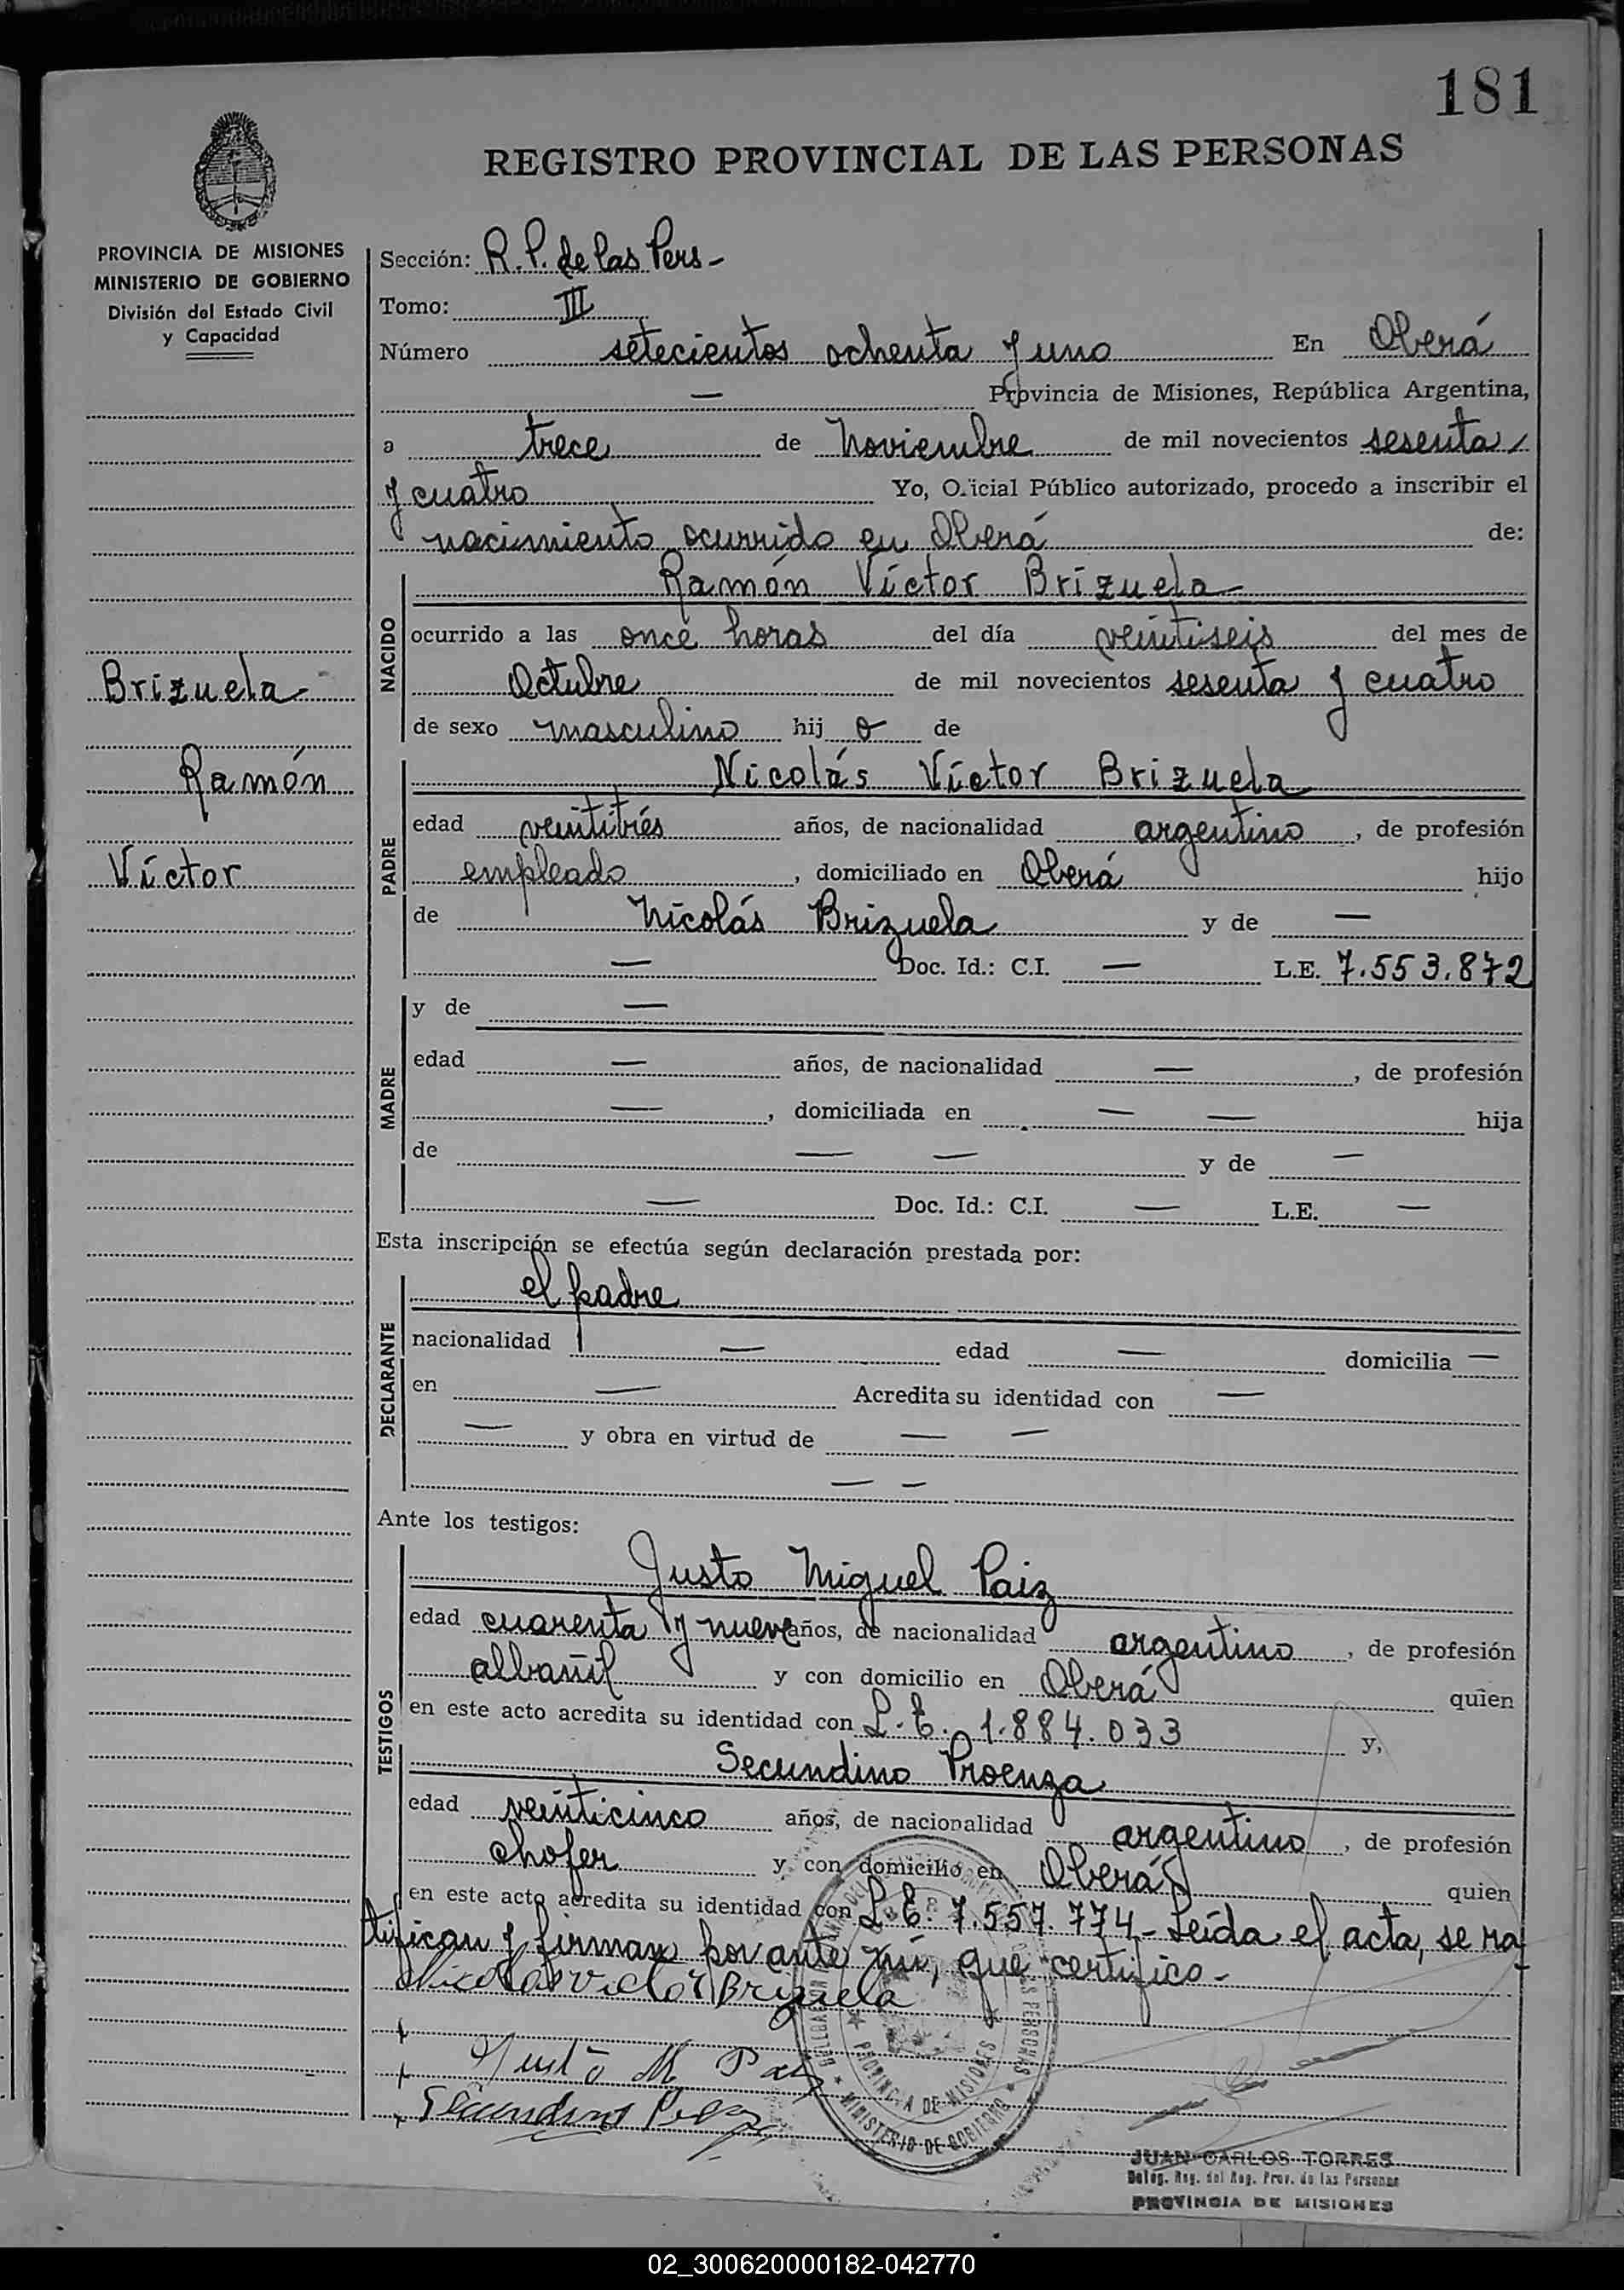 181
REGISTRO PROVINCIAL DE LAS PERSONAS
PROVINCIA DE MISIONES
MINISTERIO DE GOBIERNO
División del Estado Civil
y Capacidad
Brizuela
Ramón
Víctor
Sección: R.P. de las Pers-
Tomo: III
Número setecientos ochenta y uno En Oberá
— Provincia de Misiones, República Argentina,
a trece de Noviembre de mil novecientos sesenta
y cuatro Yo, Oficial Público autorizado, procedo a inscribir el
nacimiento ocurrido en Oberá de:
NACIDO
Ramón Víctor Brizuela
ocurrido a las once horas del día veintiseis del mes de
Octubre de mil novecientos sesenta y cuatro
de sexo masculino hij o de
PADRE
Nicolás Víctor Brizuela
edad veintitrés años, de nacionalidad argentino, de profesión
empleado, domiciliado en Oberá hijo
de Nicolás Brizuela y de —
— Doc. Id.: C.I. — L.E. 7.553.872
MADRE
y de —
edad — años, de nacionalidad —, de profesión
—, domiciliada en — — hija
de — — y de —
— Doc. Id.: C.I. — L.E. —
Esta inscripción se efectúa según declaración prestada por:
DECLARANTE
el padre
nacionalidad — edad — domicilia —
en — Acredita su identidad con —
— y obra en virtud de — —
— —
Ante los testigos:
TESTIGOS
Justo Miguel Paiz
edad cuarenta y nueve años, de nacionalidad argentino, de profesión
albañil y con domicilio en Oberá quien
en este acto acredita su identidad con L.E. 1.884.033 y,
Secundino Proenza
edad veinticinco años, de nacionalidad argentino, de profesión
chofer y con domicilio en Oberá quien
en este acto acredita su identidad con L.E. 7.557.774- Leída el acta, se ra
tifican y firman por ante mí, que certifico-
Nicolas Victor Brizuela
Justo M Paiz
Secundino
PROVINCIA DE MISIONES
MINISTERIO DE GOBIERNO
JUAN CARLOS TORRES
Deleg. Reg. del Reg. Prov. de las Personas
PROVINCIA DE MISIONES
02_300620000182-042770